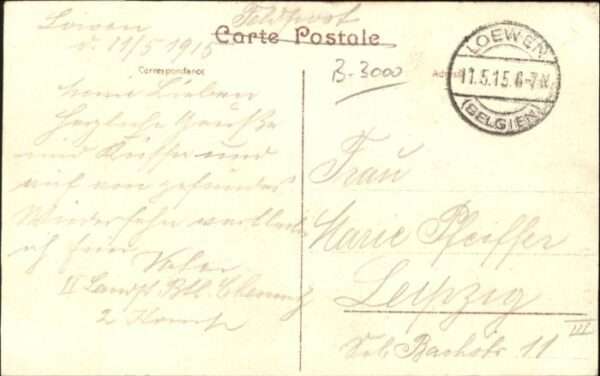 Löwen
d. 11/5 1915
Feldpost
Carte Postale
Correspondance
B-3000
LOEWEN
11.5.15.6-7N
(BELGIEN)
meine Lieben
Herzliche Grüße
und Küsse und
auf ein gesundes
Wiedersehn
Vater
II Landst Btl. Chemnitz
2 Komp
Frau
Marie Pfeiffer
Leipzig
Seb. Bachstr 11 III